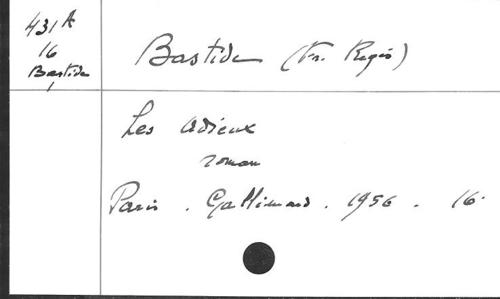 431 A
16
Bastide
Bastide (Fr. Régis)
Les Adieux
roman
Paris . Gallimard . 1956 . 16°